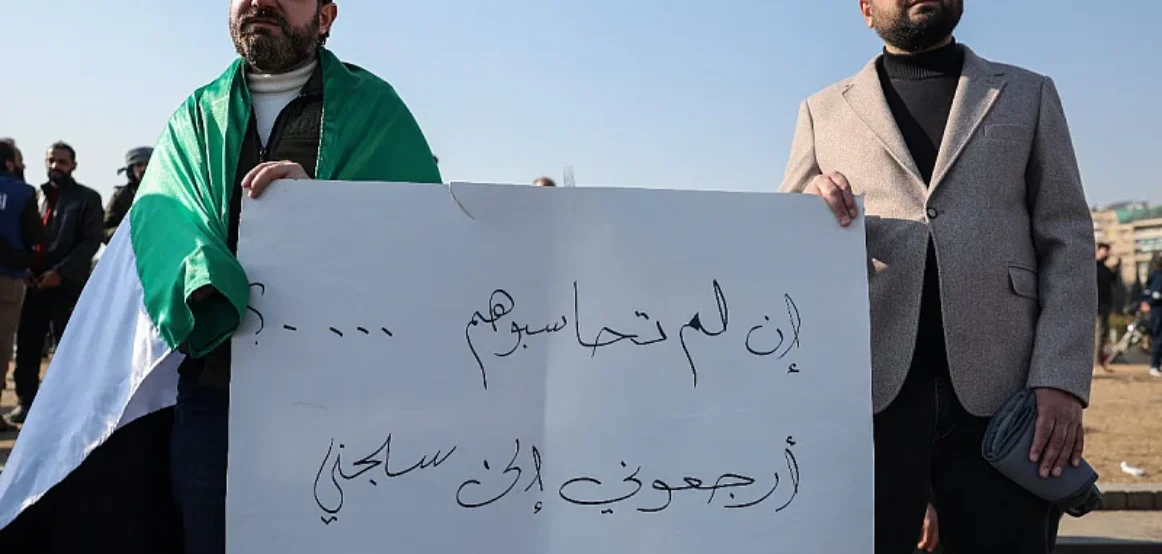 إن لم تحاسبوهم ........؟
أرجعوني إلى سجني